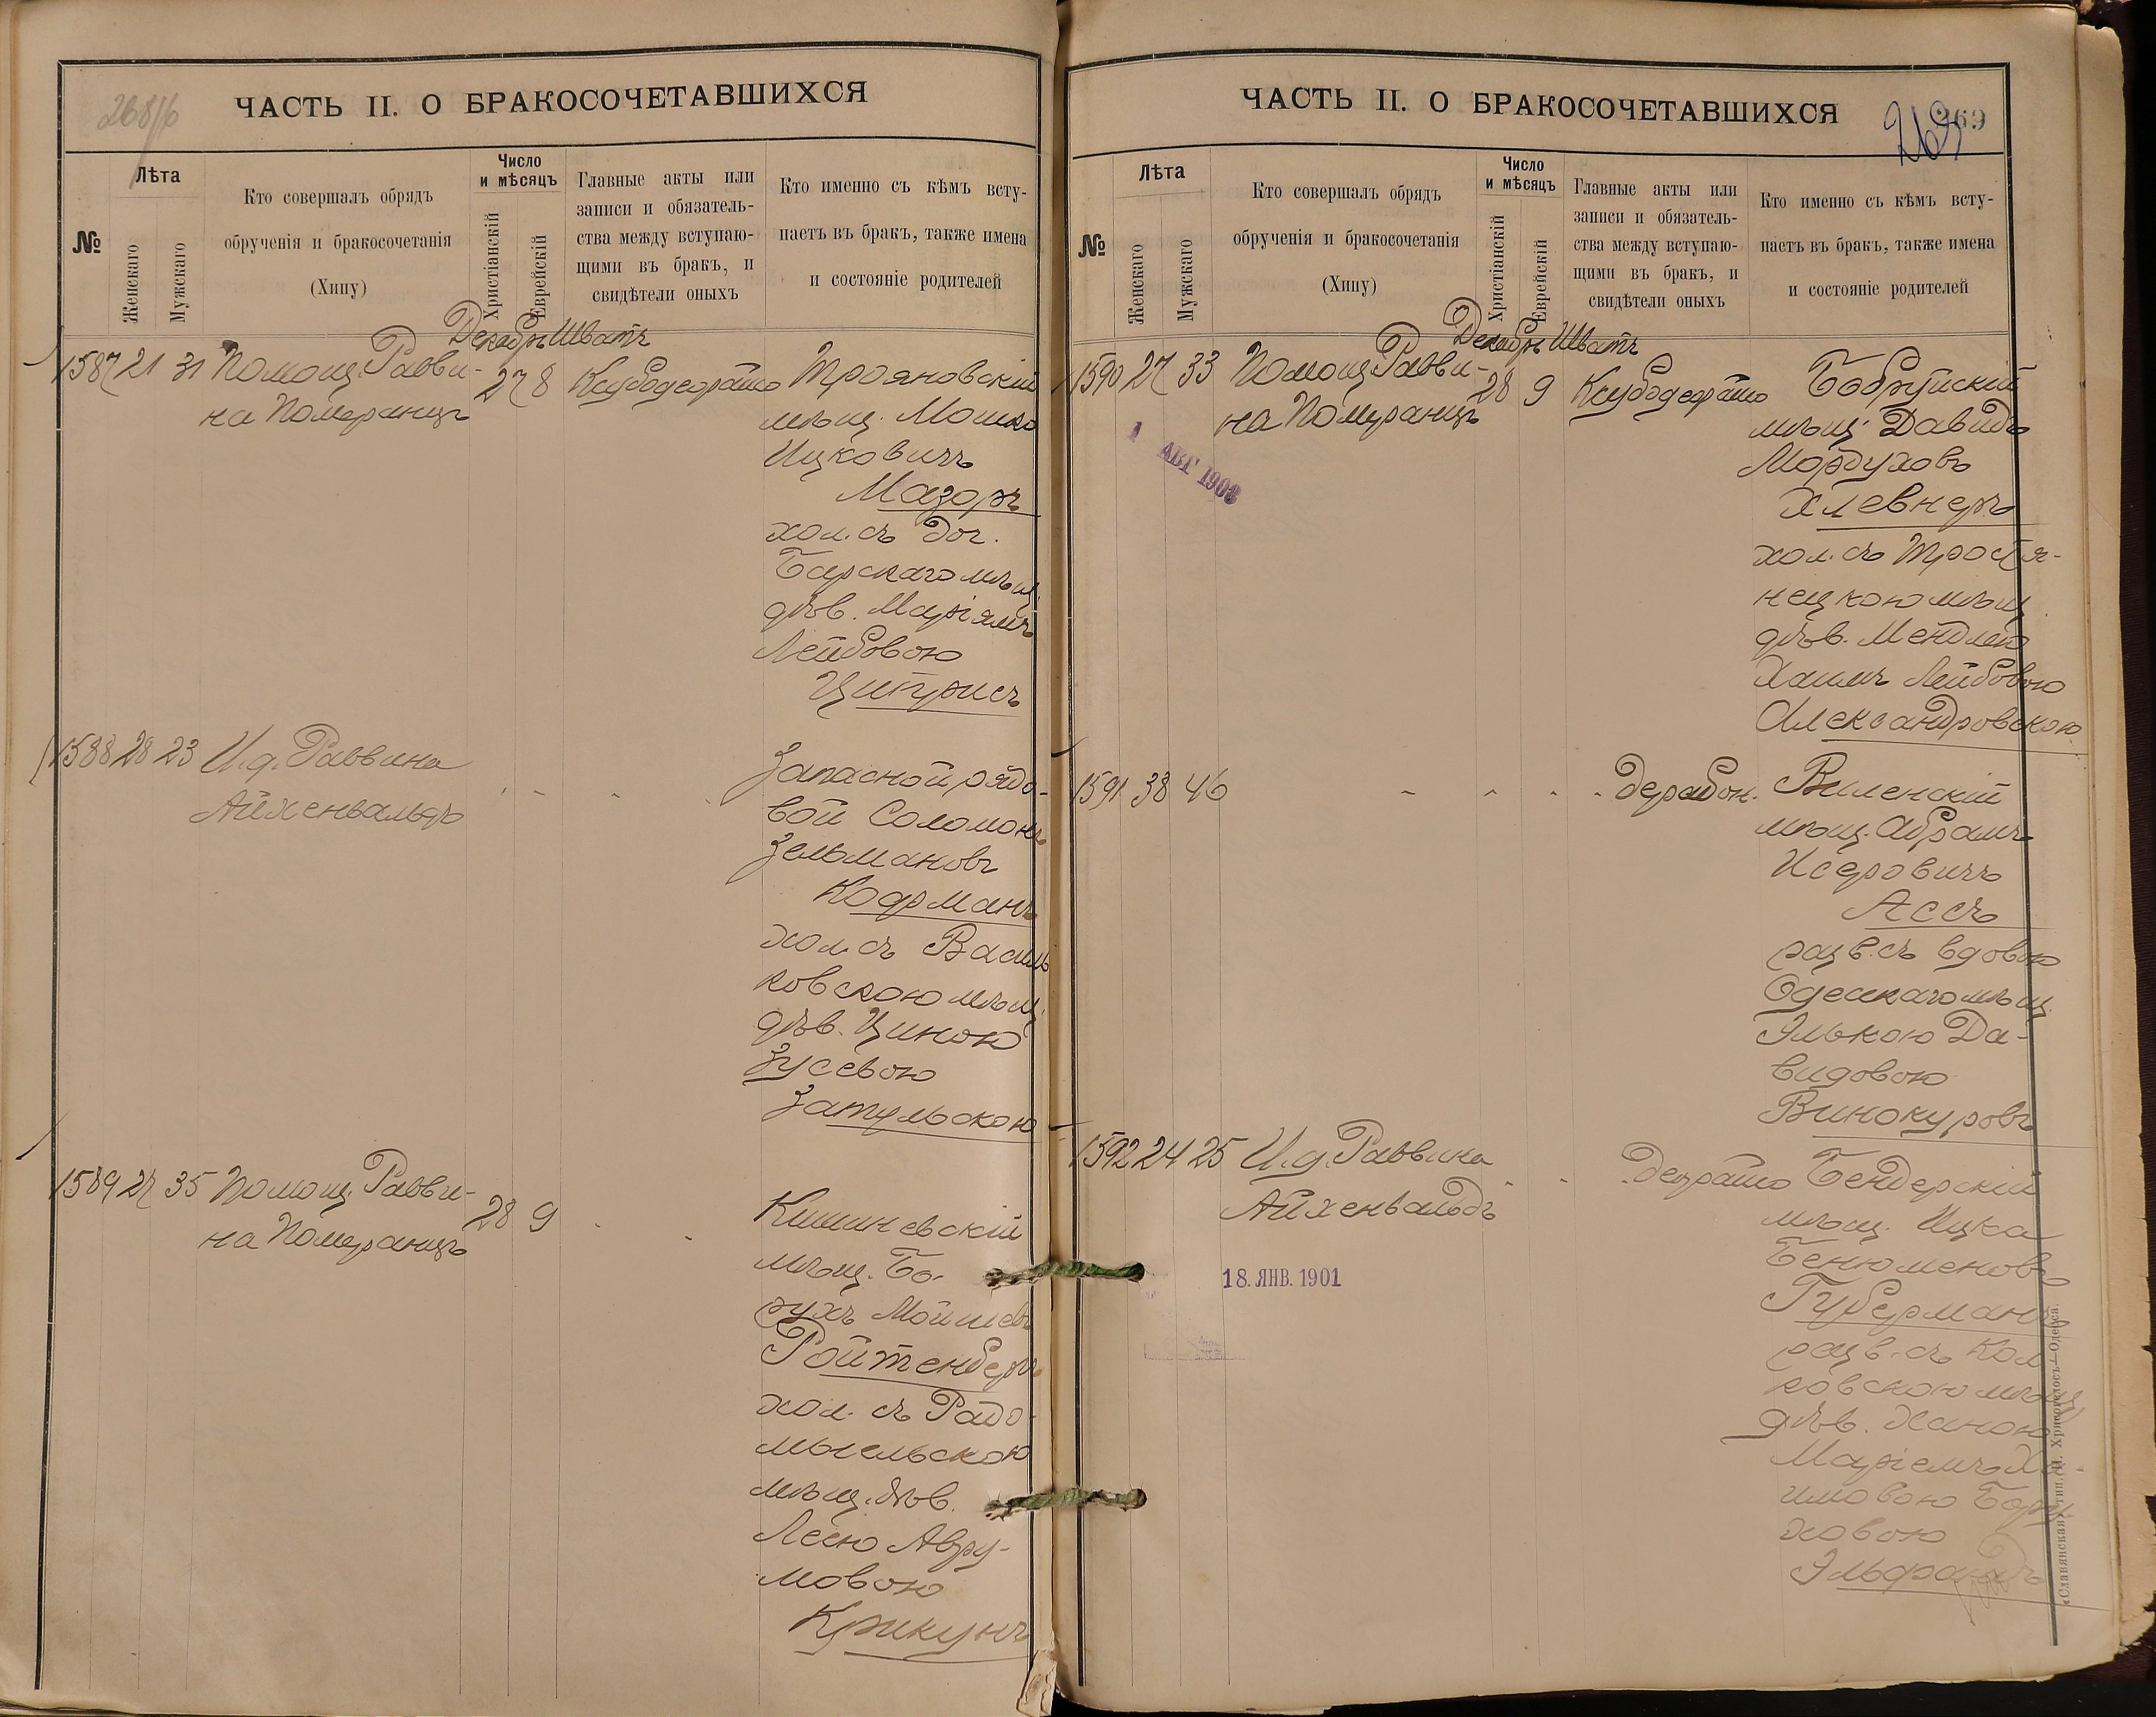 268/б
ЧАСТЬ II. О БРАКОСОЧЕТАВШИХСЯ
№
Лѣта
Женскаго
Мужскаго
Кто совершалъ обрядъ
обрученія и бракосочетанія
(Хипу)
Число
и мѣсяцъ
Христіанскій
Еврейскій
Главные акты или
записи и обязатель-
ства между вступаю-
щими въ бракъ, и
свидѣтели оныхъ
Кто именно съ кѣмъ всту-
паетъ въ бракъ, также имена
и состояніе родителей
Декабрь Шватъ
1587 21 31 Помощ. Равви-
на Померанцъ
27 8
Трояновскій
мѣщ. Мошко
Ицковичъ
Мазоръ
хол. съ доч.
Барскаго мѣщ.
дѣв. Маріямъ
Лейбовою
Циприсъ
1588 28 23 И. д. Раввина
Айхенвальдъ
Запасной рядо-
вой Соломонъ
Зельмановъ
Кофманъ
хол. съ Василь
ковскою мѣщ.
дѣв. Циною
Зусевою
Затульскою
1589 27 35 Помощ. Равви-
на Померанцъ
28 9
Кишиневскій
мѣщ. Бо-
рухъ Мойшевъ
Ройтенбергъ
хол. съ Радо-
мысльскою
мѣщ. дѣв.
Леею Авру-
мовою
Крикунъ
ЧАСТЬ II. О БРАКОСОЧЕТАВШИХСЯ
269
269
№
Лѣта
Женскаго
Мужскаго
Кто совершалъ обрядъ
обрученія и бракосочетанія
(Хипу)
Число
и мѣсяцъ
Христіанскій
Еврейскій
Главные акты или
записи и обязатель-
ства между вступаю-
щими въ бракъ, и
свидѣтели оныхъ
Кто именно съ кѣмъ всту-
паетъ въ бракъ, также имена
и состояніе родителей
Декабрь Шватъ
1590 27 33 Помощ. Равви-
на Померанцъ
28 9
1 АВГ 1908
Бобруйскій
мѣщ. Давидъ
Мордуховъ
Хлевнеръ
хол. съ Тростя-
нецкою мѣщ
дѣв. Мендлею
Хаимъ Лейбовою
Александровскою
1591 38 46
Виленскій
мѣщ. Абрамъ
Исеровичъ
Ассъ
разв. съ вдовою
Одесскаго мѣщ
Элькою Да-
видовою
Винокуровъ
1592 24 25 И. д. Раввина
Айхенвальдъ
18. ЯНВ. 1901
Бендерскій
мѣщ. Ицка
Бенюменовъ
Губерманъ
разв. съ
ровскою мѣщ
дѣв. Ханою
Маріемъ Ха-
имовою Бору
ховою
«Славянская» тип. Н. Хрисогелосъ—Одесса.